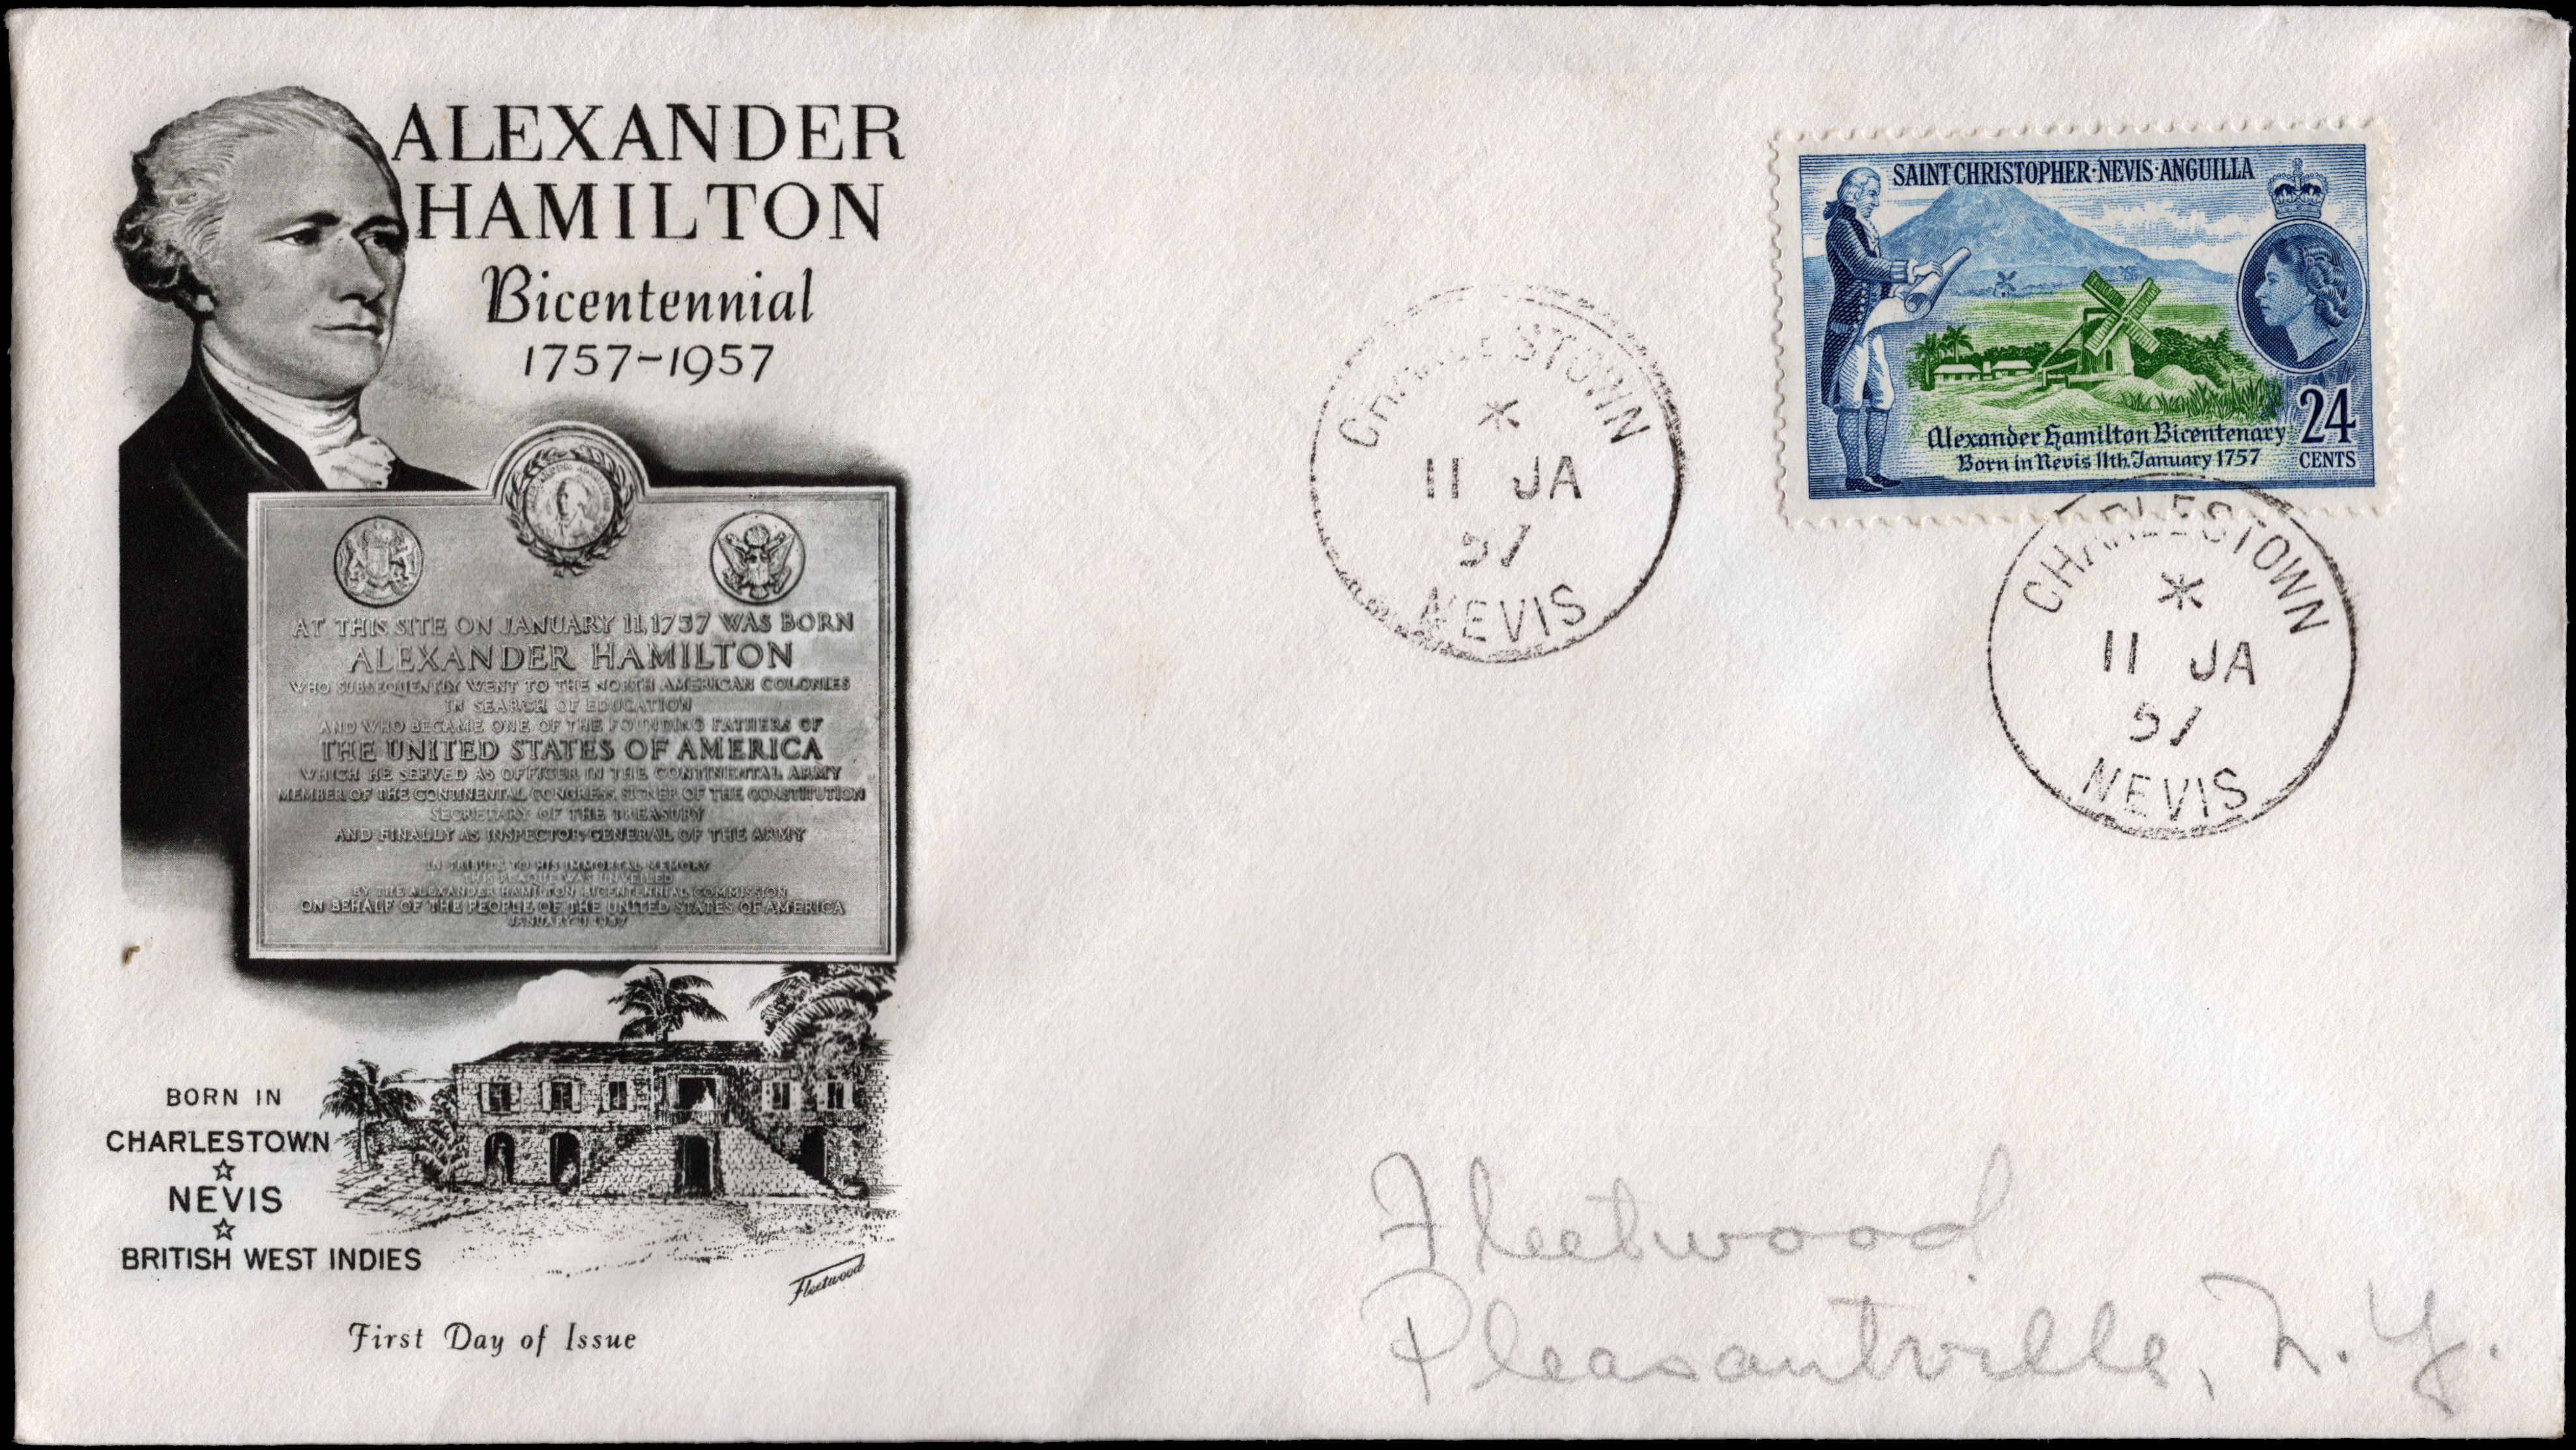 ALEXANDER
HAMILTON
Bicentennial
1757-1957
AT THIS SITE ON JANUARY 11, 1757 WAS BORN
ALEXANDER HAMILTON
WHO SUBSEQUENTLY WENT TO THE NORTH AMERICAN COLONIES
IN SEARCH OF EDUCATION
AND WHO BECAME ONE OF THE FOUNDING FATHERS OF
THE UNITED STATES OF AMERICA
WHICH HE SERVED AS OFFICER IN THE CONTINENTAL ARMY
MEMBER OF THE CONTINENTAL CONGRESS, SIGNER OF THE CONSTITUTION
SECRETARY OF THE TREASURY
AND FINALLY AS INSPECTOR-GENERAL OF THE ARMY
IN TRIBUTE TO HIS IMMORTAL MEMORY
THIS PLAQUE WAS UNVEILED
BY THE ALEXANDER HAMILTON BICENTENNIAL COMMISSION
ON BEHALF OF THE PEOPLE OF THE UNITED STATES OF AMERICA
JANUARY 11, 1957
BORN IN
CHARLESTOWN
NEVIS
BRITISH WEST INDIES
Fleetwood
First Day of Issue
CHARLESTOWN
11 JA
57
NEVIS
SAINT CHRISTOPHER·NEVIS·ANGUILLA
Alexander Hamilton Bicentenary
Born in Nevis 11th. January 1757
24
CENTS
CHARLESTOWN
11 JA
57
NEVIS
Fleetwood
Pleasantville, N.Y.